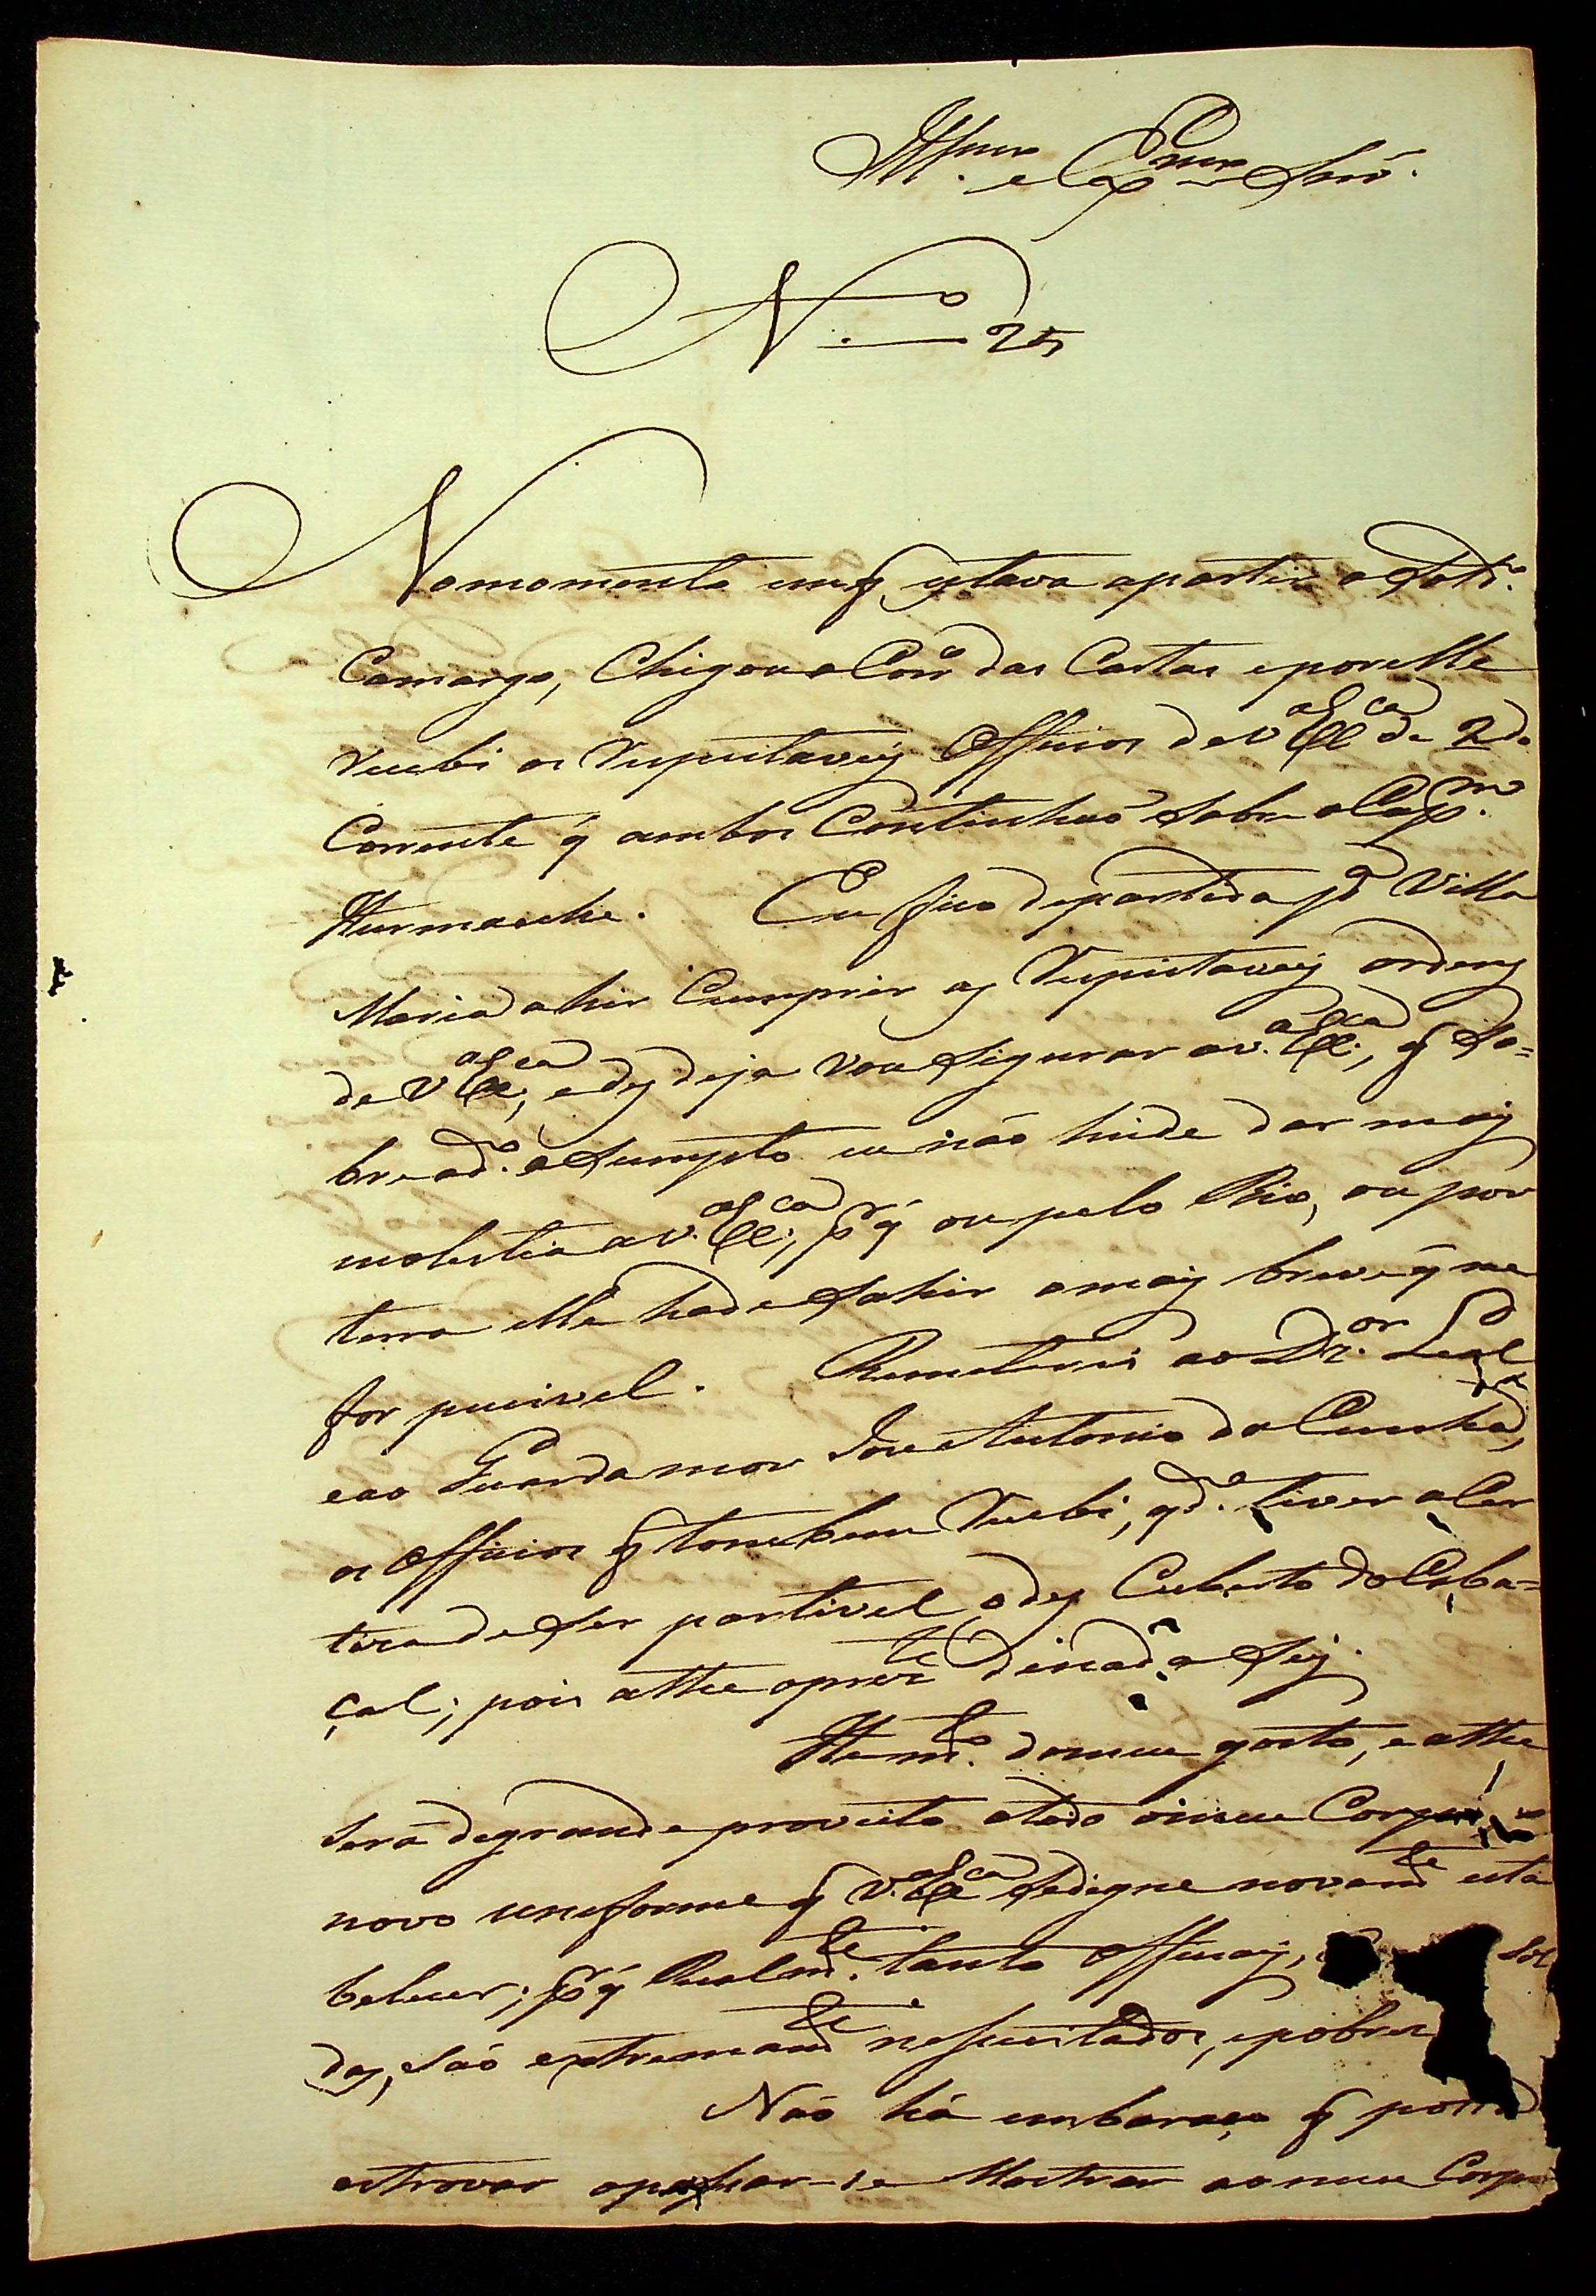 Ill.mo e Ex.mo Snr.
N.o 25
No momento em q estava a partir o Sold.o
Camargo, Chegou o Corr.o das Cartas e por elle
recebi os respeitaveis Officios de V.a Ex.ca de 2 do
Corrente q ambos Continhão sobre o Cap.m
Eu fico de partida p.a Villa
Maria a hir Cumprir as respeitaveis ordens
de V.a Ex.ca, e desde ja vou sigurar a V.a Ex.ca, q so=
bre o d.o asumpto eu não heide dar mais
molestia a V.a Ex.ca; p.r q ou pelo Rio, ou por
terra elle hade sahir o mais breve q me
for pucivel. Remeterei ao D.or Leal
e ao Guardamor Jose Antonio da Cunha,
os Officios q tambem recebi, q.do tiver a Cer
teza de ser partivel o des Cuberto do Caba=
çal; pois athe o prez.te de nada sei.
He m.to do meu gosto, e athe
será de grande proveito a todo o meu Corpo
novo uneforme q V.a Ex.ca se digne novam.te esta
belecer; p.r q Realm.te tanto Officiais, Sol
dos, são extremam.te nesecitados, e pobres
Não há embaraço q possa
estrovar o se Mostrar ao meu Corpo